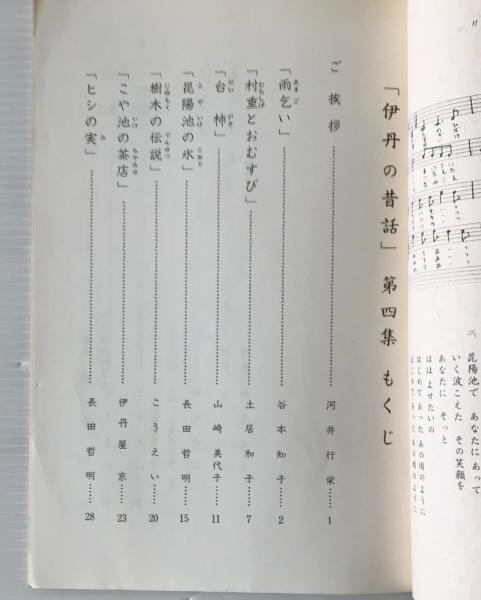 三、昆陽池で あなたに あって
いく波こえた その笑顔を
あなたに そっと
ほほ よせたいの
はじめてあった あの頃のように
はじめてあった あの頃のように
「伊丹の昔話」第四集 もくじ
ご挨拶……河井行栄……1
「雨乞い」……谷本知子……2
「村重とおむすび」……土居和子……7
「台柿」……山崎美代子……11
「昆陽池の氷」……長田哲明……15
「樹木の伝説」……こうえい……20
「こや池の茶店」……伊丹屋 京……23
「ヒシの実」……長田哲明……28